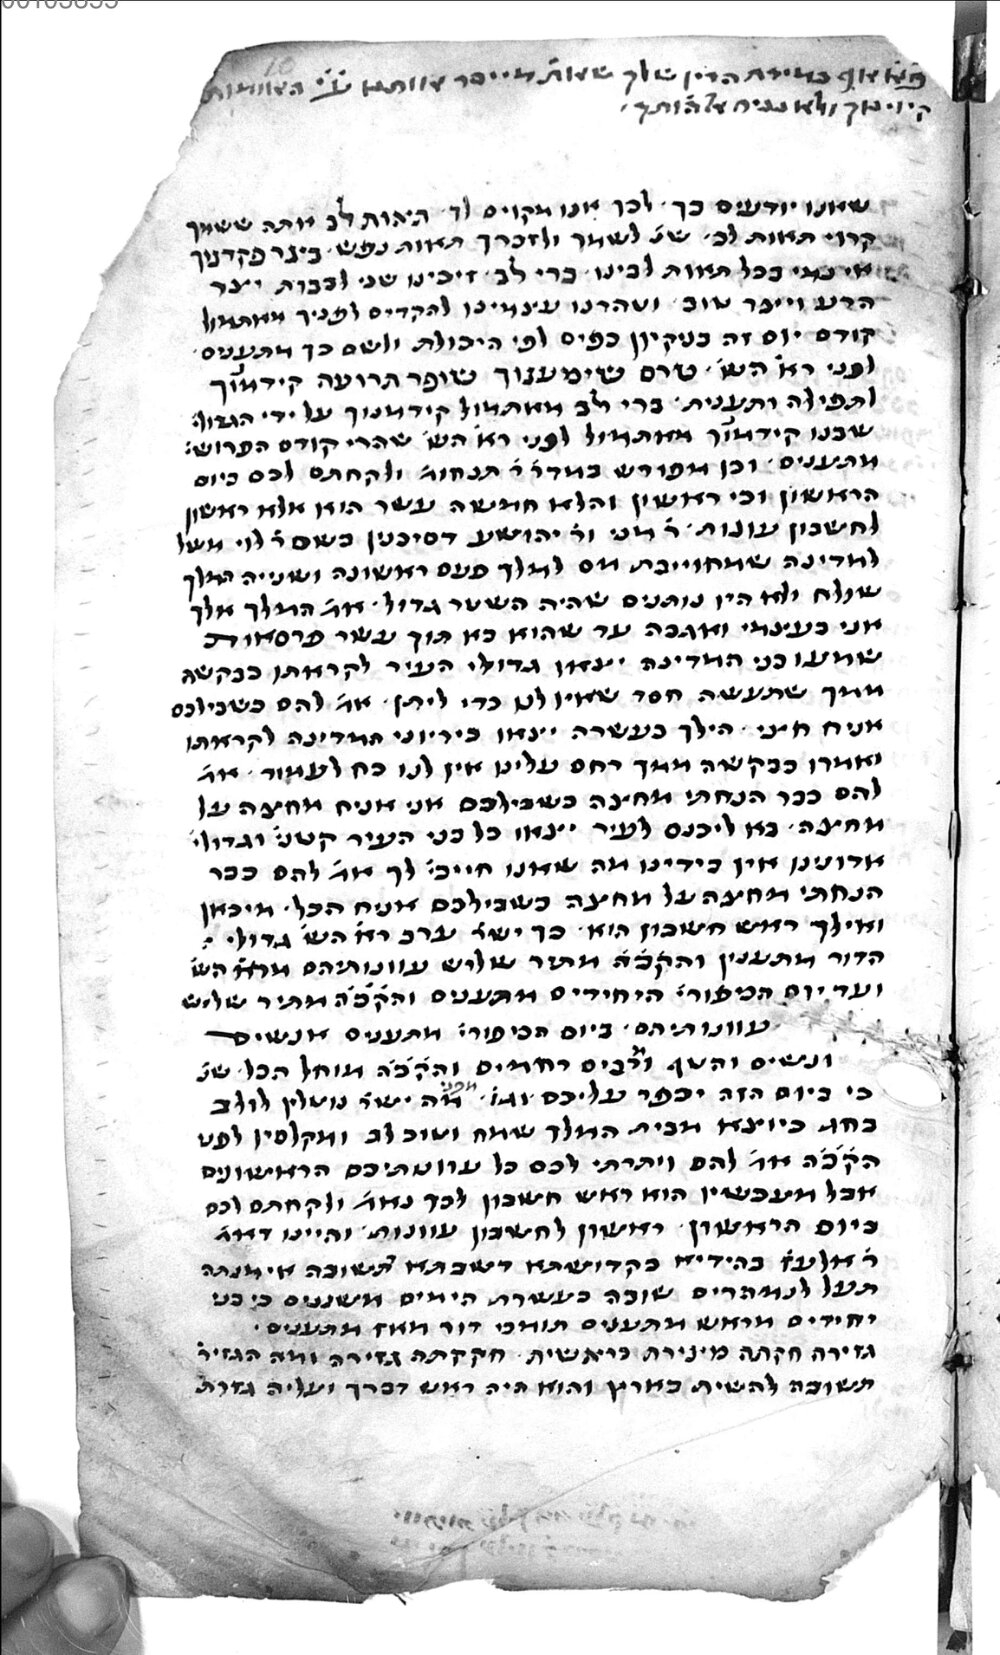 00103855
10
אף במידת הדין שלך שאת מייסר אותם ע״י האומות
קיוינוך ולא נניח אלהותך׳
שאנו יודעים כך׳ לכך אנו מקוים לך׳ תאות לב אתה ששמך
קרוי תאות לב׳ שנ׳ לשמך ולזכרך תאות נפש׳ ביצר פקדנוך
בכל תאות לבינו׳ ברי לב׳ זיכינו שני לבבות ייצר
הרע וייצר טוב׳ וטהרנו עצמינו להקדים לפניך מאתמול
קודם יום זה בניקיון כפים לפי היכולת ולשם כך מתענים׳
לפני רא׳ הש׳׳ טרם שימענוך שופר תרועה קידמנוך
לתפילה ותענית׳ ברי לב מאתמול קידמנוך על ידי הגדול׳
שבנו קידמנוך מאתמול לפני רא׳ הש׳ שהרי קודם הפרוש׳
מתענים׳ וכן מפורש במדר׳ ר׳ תנחומ׳ ולקחתם לכם ביום
הראשון וכי ראשון והלא חמשה עשר הוא אלא ראשון
לחשבון עונות׳ ר׳ מני ור׳ יהושע דסיכנין בשם ר׳ לוי משל
למדינה שמחוייבת מס למלך פעם ראשונה ושנייה המלך
שולח ולא היו נותנים שהיה השטר גדול׳ אמ׳ המלך אלך
אני בעצמי ואגבה עד שהוא בא תוך עשר פרסאות
שמעו בני המדינה ייצאו גדולי העיר לקראתו בבקשה
ממך שתעשה חסד שאין לנו כדי ליתן׳ אמ׳ להם בשבילכם
אניח חצי׳ הילך בעשרה ייצאו בירוני המדינה לקראתו
ואמרו בבקשה ממך רחם עלינו אין לנו כח לעמוד׳ אמ׳
להם כבר הנחתי מחצה בשבילכם אני אניח מחצה על
מחצה׳ בא ליכנס לעיר ייצאו כל בני העיר קטני׳ וגדולי׳
אדונינו אין בידינו מה שאנו חייבי׳ לך אמ׳ להם כבר
הנחתי מחצה על מחצה בשבילכם אניח הכל׳ מיכאן
ואילך ראש חשבון הוא׳ כך ישר׳ ערב רא׳ הש׳ גדולי׳
הדור מתענין והק׳ב׳ה מתיר שליש עוונותיהם מרא׳ הש׳
ועד יום הכיפור׳ היחידים מתענים והק׳ב׳ה מתיר שליש
עוונותיהם׳ ביום הכיפור׳ מתענים אנשים
ונשים והטף ומרבים רחמים והק׳ב׳ה מוחל הכל׳ שנ׳
כי ביום הזה יכפר עליכם וגו׳׳ מפני מה ישר׳ נוטלין לולב
בחג כיוצא מבית המלך שמח וטוב לב ומקלסין לפני
הק׳ב׳ה אמ׳ להם ויתרתי לכם כל עוונותיכם הראשונים
אבל מעכשיו הוא ראש חשבון לכך נאמ׳ ולקחתם לכם
ביום הראשון׳ ראשון לחשבון עוונות׳ והיינו דאמ׳
ר׳ אלעז׳ בהידיא בקדושתא דשבתא תשובה אימתה
תעל לנמהרים שובה בעשרת הימים משננים כי בני
יחידים מראש מתענים תומכי דור מאז מתענים׳
גזירה חקתה מיצירת בראשית׳ חקקתה גזירה ומה הגזיר׳
תשובה להשית בארץ והוא היה ראש דברך ועליה גזרת